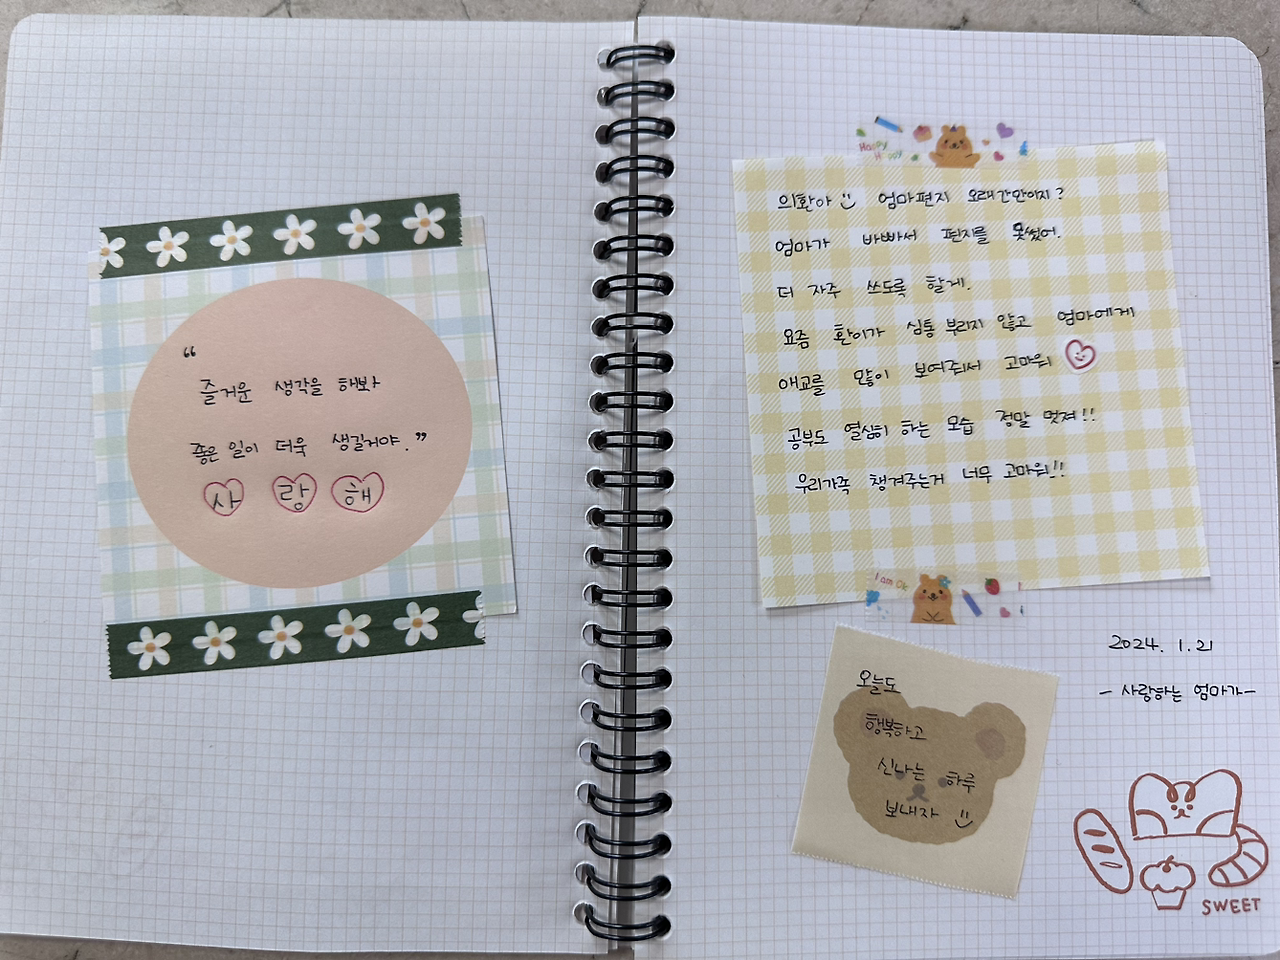 “
즐거운 생각을 해봐
좋은 일이 더욱 생길거야.”
사 랑 해
Happy
Happy
의환아 엄마편지 오래간만이지?
엄마가 바빠서 편지를 못썼어.
더 자주 쓰도록 할게.
요즘 환이가 심통 부리지 않고 엄마에게
애교를 많이 보여줘서 고마워
공부도 열심히 하는 모습 정말 멋져!!
우리가족 챙겨주는거 너무 고마워!!
I am Ok
2024. 1. 21
- 사랑하는 엄마가-
오늘도
행복하고
신나는 하루
보내자
SWEET